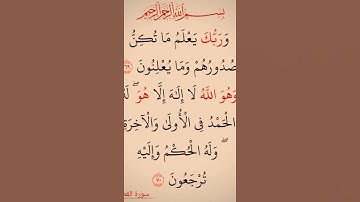 بِسْمِ اللَّهِ الرَّحْمَٰنِ الرَّحِيمِ
وَرَبُّكَ يَعْلَمُ مَا تُكِنُّ
صُدُورُهُمْ وَمَا يُعْلِنُونَ ٦٩
وَهُوَ اللَّهُ لَا إِلَٰهَ إِلَّا هُوَ ۖ لَهُ
الْحَمْدُ فِي الْأُولَىٰ وَالْآخِرَةِ
ۖ وَلَهُ الْحُكْمُ وَإِلَيْهِ
تُرْجَعُونَ ٧٠
سورة